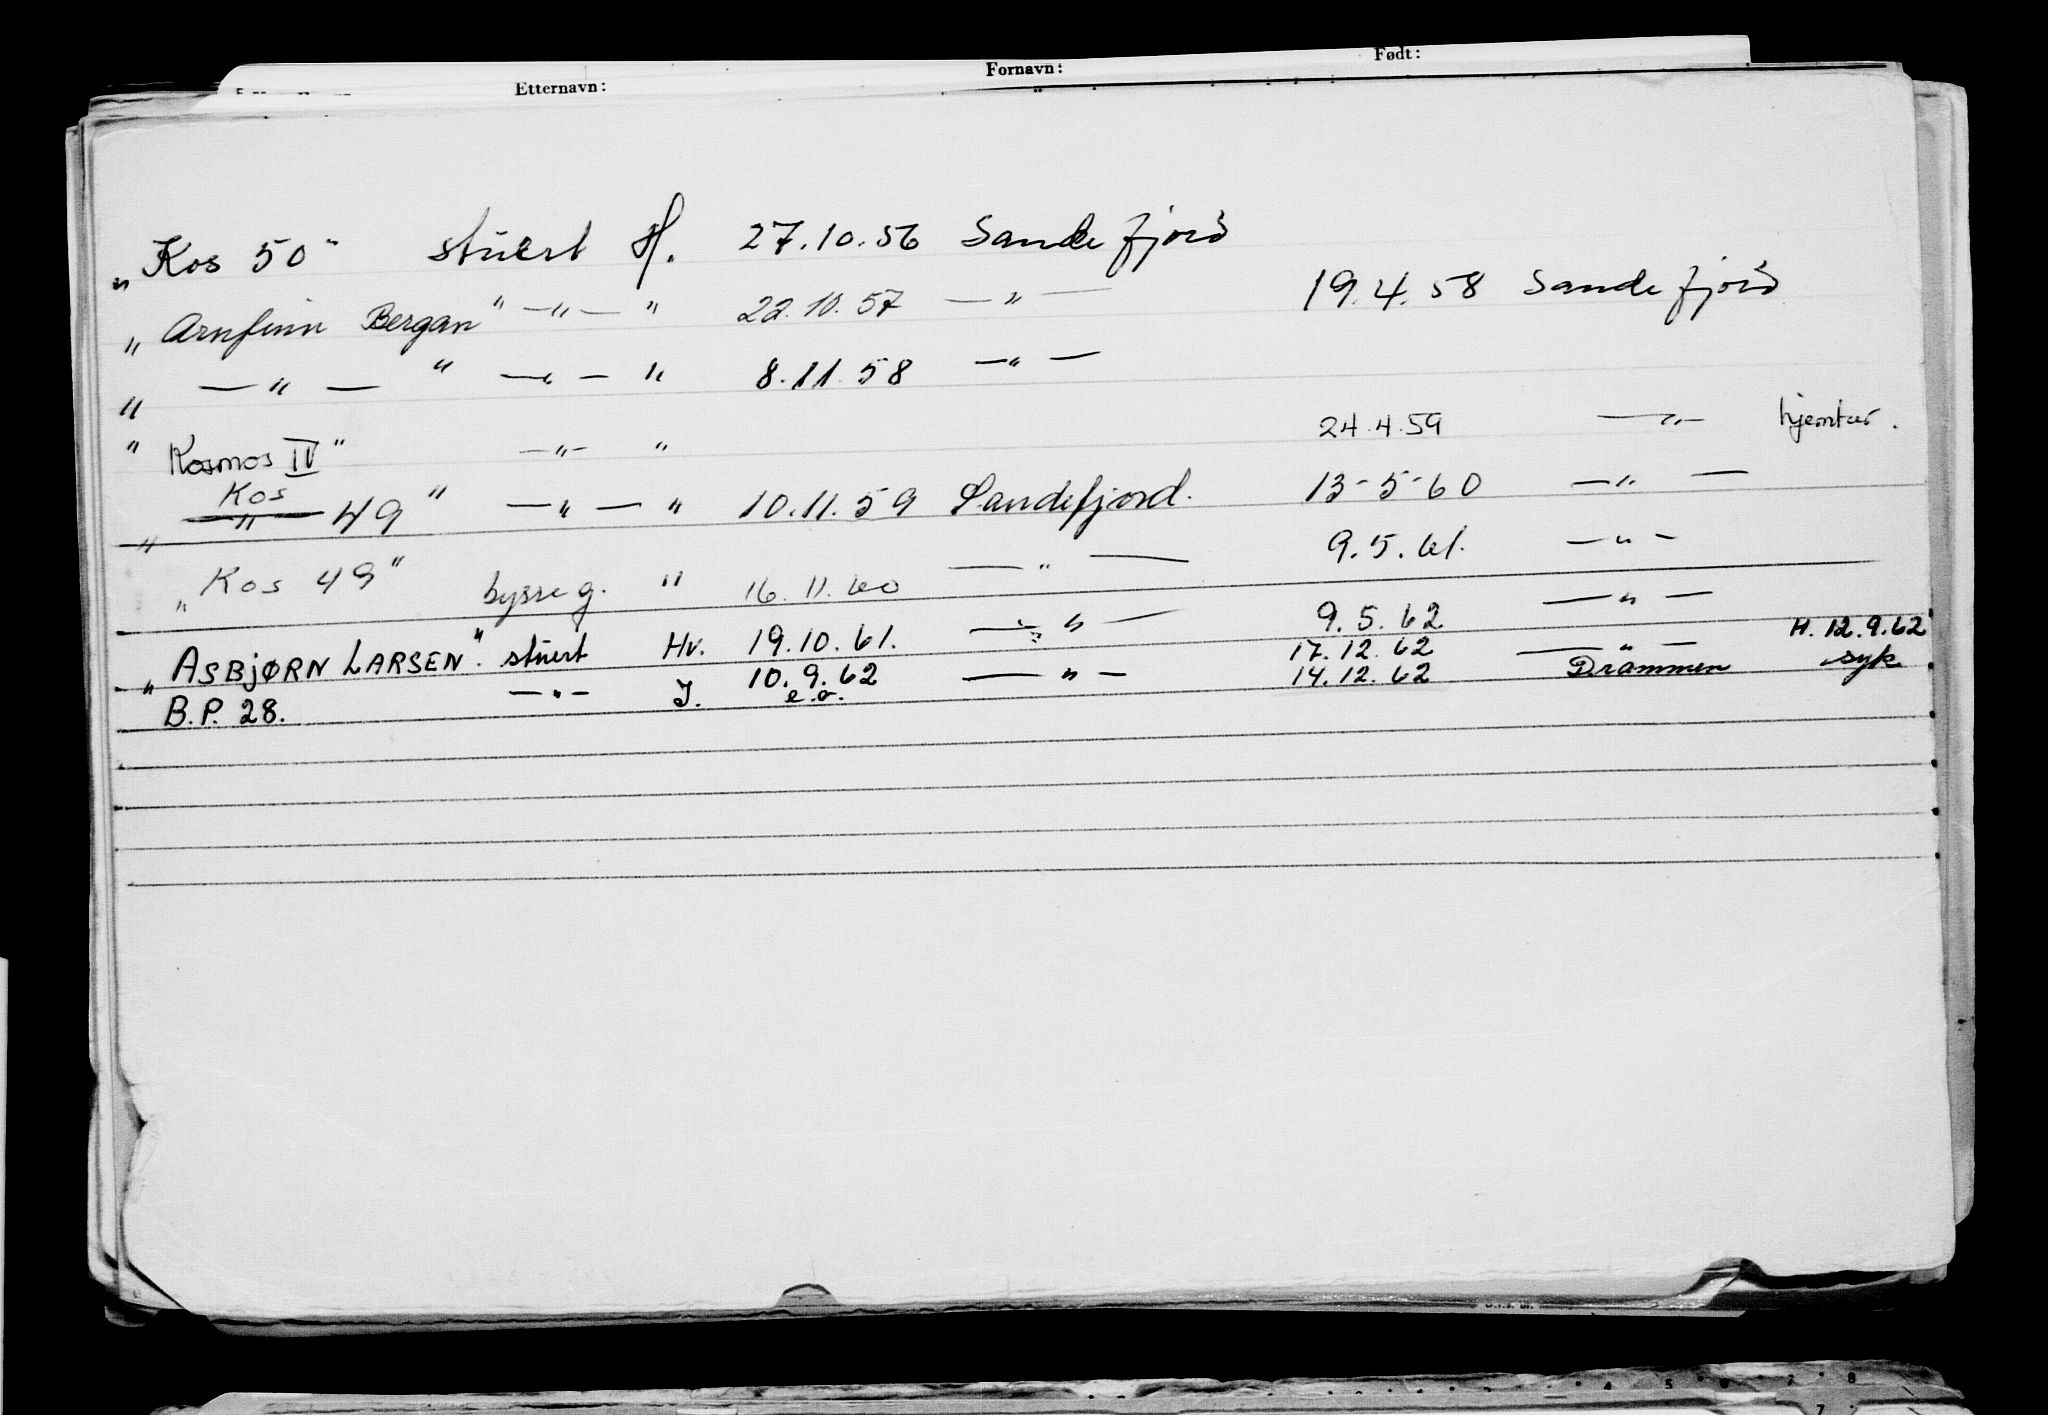 Etternavn: Fornavn: Født:
„Kos 50" stuert H. 27.10.56 Sandefjord
„Arnfinn Bergan" —„— " 22.10.57 —„— 19.4.58 Sandefjord
„ —„— " —„— " 8.11.58 —„—
„Kosmos IV" —„— " 24.4.59 —„— hjemtur.
Kos
„ —„— 49" —„— " 10.11.59 Sandefjord. 13-5-60 —„—
„Kos 49" bysse g. " 16.11.60 —„— 9.5.61. —„—
„ASBJØRN LARSEN". stuert Hv. 19.10.61. —„— 9.5.62 —„—
B.P. 28. —„— J. 10.9.62 —„— 17.12.62 —„— H. 12.9.62
e.o. 14.12.62 Drammen syk